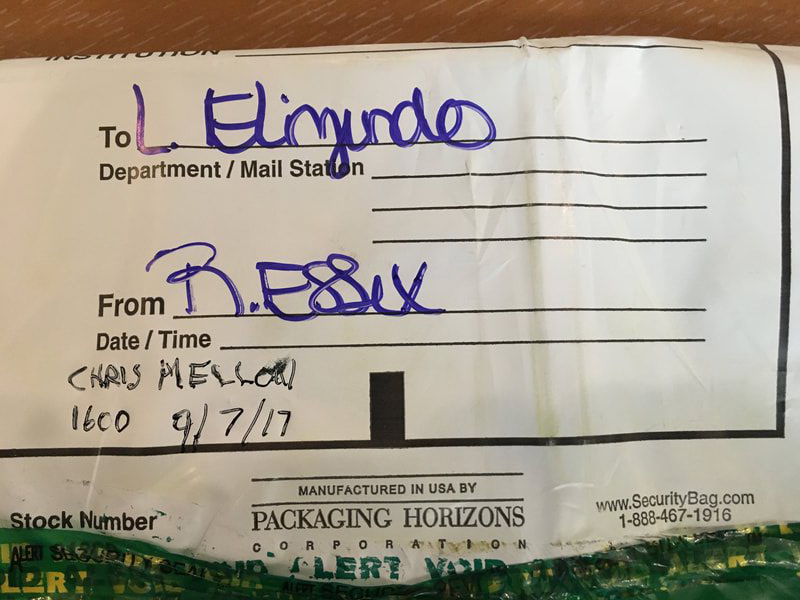 INSTITUTION
To L. Elizundo
Department / Mail Station
From R. Essex
Date / Time
CHRIS MELLON
1600 9/7/17
MANUFACTURED IN USA BY
PACKAGING HORIZONS
CORPORATION
www.SecurityBag.com
1-888-467-1916
Stock Number
ALERT VOID
ALERT VOID